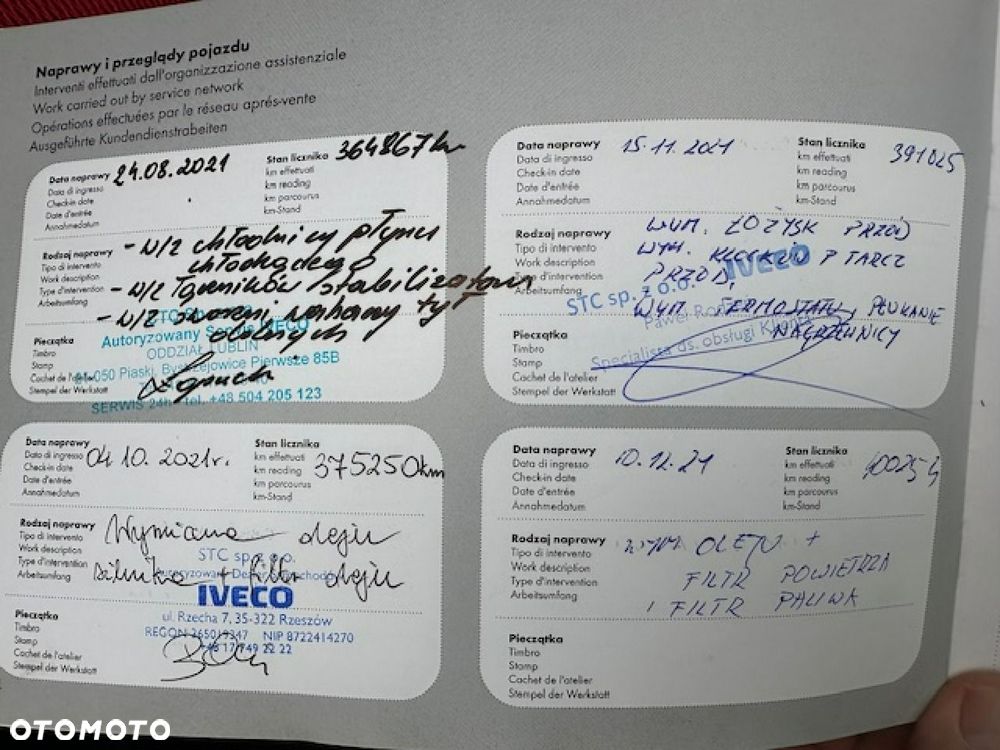 Naprawy i przeglądy pojazdu
Interventi effettuati dall'organizzazione assistenziale
Work carried out by service network
Opérations effectuées par le réseau aprés-vente
Ausgeführte Kundendienstarbeiten
Data naprawy 24.08.2021 Stan licznika 364867km
Data di ingresso km effettuati
Check-in date km reading
Date d'entrée km parcourus
Annahmedatum km-Stand
Rodzaj naprawy - w/z chłodnicy płynu
Tipo di intervento chłodzącego
Work description
Type d'intervention - w/z łączników stabilizatora
Arbeitsumfang
- w/z sworzni wahaczy tył
dolnych
Autoryzowany Serwis IVECO
ODDZIAŁ LUBLIN
21-050 Piaski, Bystrzejowice Pierwsze 85B
SERWIS 24h tel. +48 504 205 123
Pieczątka
Timbro
Stamp
Cachet de l'atelier
Stempel der Werkstatt
Data naprawy 15.11.2021 Stan licznika 391025
Data di ingresso km effettuati
Check-in date km reading
Date d'entrée km parcourus
Annahmedatum km-Stand
Rodzaj naprawy WYM. ŁOŻYSK PRZÓD
Tipo di intervento WYM. KLOCKÓW + TARCZ
Work description PRZÓD,
Type d'intervention
Arbeitsumfang WYM. TERMOSTATU, PŁUKANIE
NAGRZEWNICY
IVECO
STC sp. z o.o.
Paweł
Specjalista ds. obsługi
Pieczątka
Timbro
Stamp
Cachet de l'atelier
Stempel der Werkstatt
Data naprawy 04.10.2021r. Stan licznika 375250km
Data di ingresso km effettuati
Check-in date km reading
Date d'entrée km parcourus
Annahmedatum km-Stand
Rodzaj naprawy Wymiana oleju
Tipo di intervento
Work description
Type d'intervention silnika + filtr oleju
Arbeitsumfang
STC sp. z o.o.
Autoryzowany Dealer Samochodów
IVECO
ul. Rzecha 7, 35-322 Rzeszów
REGON 365019347 NIP 8722414270
+48 17 749 22 22
Pieczątka
Timbro
Stamp
Cachet de l'atelier
Stempel der Werkstatt
Data naprawy 10.12.21 Stan licznika
Data di ingresso km effettuati
Check-in date km reading
Date d'entrée km parcourus
Annahmedatum km-Stand
Rodzaj naprawy WYM OLEJU +
Tipo di intervento
Work description FILTR POWIETRZA
Type d'intervention
Arbeitsumfang FILTR PALIWA
Pieczątka
Timbro
Stamp
Cachet de l'atelier
Stempel der Werkstatt
OTOMOTO